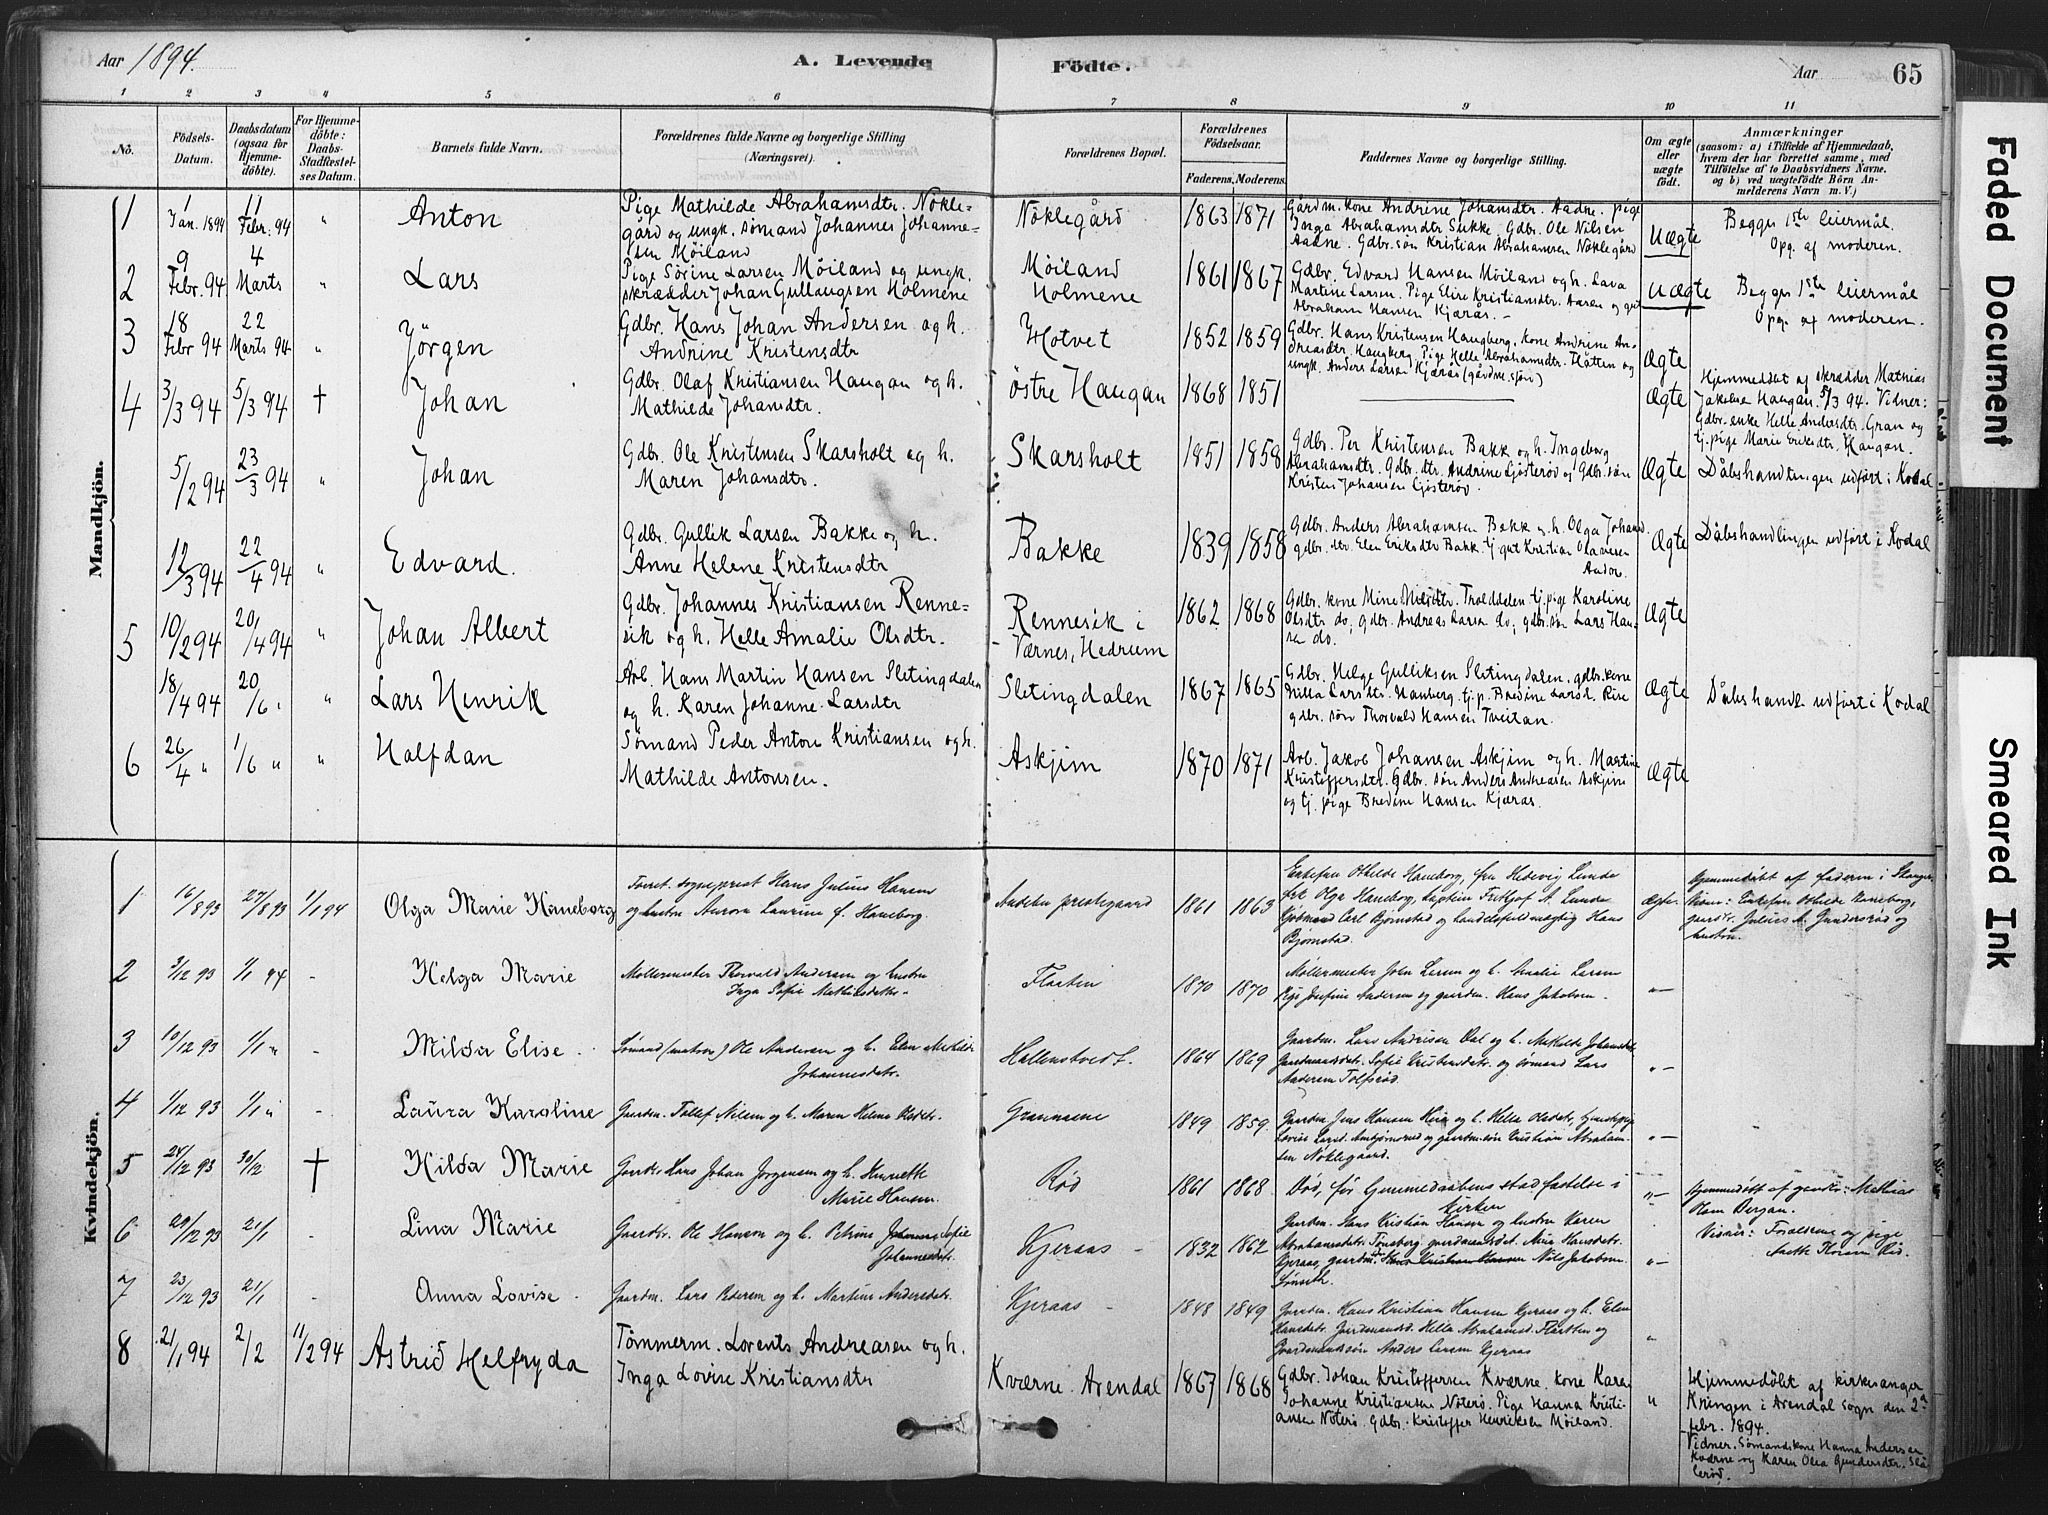 Aar 1894.
A. Levende Födte.
Aar 65
1 2 3 4 5 6 7 8 9 10 11
No.
Födsels-
Datum.
Daabsdatum
(ogsaa for
Hjemme-
döbte).
For Hjemme-
döbte:
Daabs-
Stadfæstel-
ses Datum.
Barnets fulde Navn.
Forældrenes fulde Navne og borgerlige Stilling
(Næringsvei).
Forældrenes Bopæl.
Forældrenes
Födselsaar.
Faderens. Moderens.
Faddernes Navne og borgerlige Stilling.
Om ægte
eller
uægte
födt.
Anmærkninger
(saasom: a) i Tilfælde af Hjemmedaab,
hvem der har forrettet samme, med
Tilföielse af to Daabsvidners Navne.
og b) ved uægtefödte Börn An-
melderens Navn m. V.)
Mandkjön.
1
1 Jan. 1894
11 Febr. 94
"
Anton
Pige Mathilde Abrahamsdtr. Nökle-
gård og ungk. sömand Johannes Johanne-
sen Möiland
Nöklegård
1863 1871
Gardm. kone Andrine Johansdtr. Aadne. pige
Inga Abrahamsdtr Sukke. Gdbr. Ole Nilsen
Aadne. Gdbr. sön Kristian Abrahamsen Nöklegård
Uægte
Begges 1ste leiermål.
Opg. af moderen.
2
9 Febr. 94
4 Marts
"
Lars
Pige Sörine Larsen Möiland og ungk.
skrædder Johan Gullaugsen Holmene
Möiland
Holmene
1861 1867
Gdbr. Edvard Hansen Möiland og h. Lava
Martine Larsen. Pige Elise Kristiansdtr. Aaren og gut
Abraham Hansen Kjærås.
Uægte
Begges 1ste leiermål
Opg. af moderen.
3
18 Febr 94
22 Marts 94
"
Jörgen
Gdbr. Hans Johan Andersen og h.
Andrine Kristensdtr
Hotvet
1852 1859
Gdbr. Hans Kristensen Haugberg, kone Andrine An-
dreasdtr. Haugberg. Pige Helle Abrahamsdtr. Flåtten og
ungk. Anders Larsen Kjærås (gårdm. sön)
Ægte
4
3/3 94
5/3 94
†
Johan
Gdbr. Olaf Kristiansen Haugan og h.
Mathilde Johansdtr.
östre Haugan
1868 1851
Ægte
Hjemmedöbt af skrædder Mathias
Jakobsen Haugan. 5/3 94. Vidner:
Gdbr. enke Helle Andersdtr. Gran og
tj. pige Marie Eriksdtr. Haugan.
5/2 94
23/3 94
"
Johan
Gdbr. Ole Kristensen Skarsholt og h.
Maren Johansdtr.
Skarsholt
1851 1858
Gdbr. Per Kristensen Bakk og h. Ingeborg
Abrahamsdtr. Gdbr. dtr. Andrine Gjösteröd og Gdbr. sön
Kristen Johansen Gjösteröd
Ægte
Dåbshandlingen udfört i Kodal
12/3 94
22/4 94
"
Edvard.
Gdbr. Gullik Larsen Bakke og h.
Anne Helene Kristensdtr
Bakke
1839 1858
Gdbr. Anders Abrahamsen Bakk og h. Olga Johansd.
gdbr. dtr. Elen Eriksdtr Bakk. tj. gut Kristian Olavesen
Ægte
Dåbshandlingen udfört i Kodal
5
10/2 94
20/4 94
"
Johan Albert
Gdbr. Johannes Kristiansen Renne-
sik og h. Helle Amalie Olsdtr.
Rennesik i
Værnes, Hedrum
1862 1868
Gdbr. kone Mine Trolddalen tj. pige Karoline
Olsdtr do, gdbr. Andreas Larsen do, gdbr. sön Lars Han-
sen do.
Ægte
18/4 94
20/6 "
"
Lars Henrik
Arb. Hans Martin Hansen Sletingdalen
og h. Karen Johanne Larsdtr
Sletingdalen
1867 1865
Gdbr. Helge Gulliksen Sletingdalen, gdbr. kone
Larsdtr. Hauberg. tj. p. Bredine Larsd. Rise
gdbr. sön Thorvald Hansen Tveitan.
Ægte
Dåbshandl. udfört i Kodal
6
26/4 "
1/6 "
"
Halfdan
Sömand Peder Anton Kristiansen og h.
Mathilde Antonsen.
Askjim
1870 1871
Arb. Jakob Johansen Askjim og h. Martine
Kristoffersdtr. Gdbr. sön Anders Andreasen Askjim
og tj. pige Bredine Hansen Kjærås.
Ægte
Kvindekjön.
1
16/8 93
27/8 93
1/1 94
Olga Marie Haneborg
Forret. sogneprest Hans Julius Hansen
og hustru Aurora Laurine f. Haneborg.
Andebu prestegaard
1861 1863
Enkefru Othilde Haneborg, fru Hedevig Lunde
frk Olga Haneborg, kaptein Fridtjof A. Lunde
Carl Bjørnstad og handelsfuldmægtig Hans
Bjørnstad.
Ægte.
Hjemmedöbt af faderen i
Vidner: Enkefru Othilde Haneborg,
gaardbr. Julius A. Gundersrød og
hustru.
2
3/12 93
1/1 94
-
Helga Marie
Møllermester Thorvald Andersen og hustru
Inga Sofie Mathisdatter
Flaatin
1870 1870
Møllermester John Larsen og h. Amalie Larsen
Pige Josefine Andersen og gaardm. Hans Jakobsen
"
3
10/12 93
1/1 "
-
Milda Elise.
Sømand (matros) Ole Andersen og h. Elen Mathilde
Johannesdatr.
Hallenstvedt.
1864 1869
Gaardm. Lars Andersen Dal og h. Mathilde Johansdt.
Gaardmandsdtr. Sofie Kristensdatr. og sømand Lars
Andersen Tolfsrød.
"
4
1/12 93
1/1 "
-
Laura Karoline
Gaardm. Tollef Nilsen og h. Maren Helene Olsdatr.
Grannæne
1849 1859
Gaardm. Jens Hansen og h. Helle Olsdatr,
Lovise Larsd. Anskjømrød og gaardm. søn Kristian Abraham-
sen Nøklegaard.
"
5
24/12 93
30/12
†
Hilda Marie
Gaardbr. Lars Johan Jørgensen og h. Henriette
Marie Hansen.
Rød
1861 1868
Død, før hjemmedaabens stadfæstelse i
kirken
"
Hjemmedöbt af gaardbr. Mathias
Olsen Bergan.
Vidner: Forældrene og pige
Anette Thorsen Rød.
6
29/12 93
21/1
-
Lina Marie
Gaardbr. Ole Hansen og h. Petrine Sofie
Johannesdatr.
Kjeraas
1832 1862
Gaardm. Hans Kristian Hansen og hustru Karen
Abrahamsdatr. Tønsberg, gaardmandsdt. Mina Hansdatr.
Kjeraas, gaardm. Hans Kristian Hansen Nils Jakobsen
"
7
23/12 93
21/1
-
Anna Lovise
Gaardm. Lars Pedersen og h. Martine Andersdatr.
Kjeraas
1848 1849
Gaardm. Hans Kristian Hansen Kjeraas og h. Elen
Hansdatr. Gaardmandsd. Helle Abrahamsd. Flaatten og
Gaardmandssøn Anders Larsen Kjeraas
"
8
21/1 94
2/2
11/2 94
Astrid Helfryda
Tömmerm. Lorents Andreasen og h.
Inga Lovise Kristiansdtr
Kværne. Arendal
1867 1868
Gdbr. Johan Kristoffersen Kværne. kone Karen
Johanne Kristiansen Noterö. Pige Hanna Kristi-
ansen Noterö. Gdbr. Kristoffer Henriksen Möiland.
"
Hjemmedöbt af kirkesanger
Kringen i Arendal sogn den 2den
febr. 1894.
Vidner. Sömandskone Hanna Andersen
Kværne og Karen Olea Gundersdtr. Slå-
leröd.
Faded Document
Smeared Ink